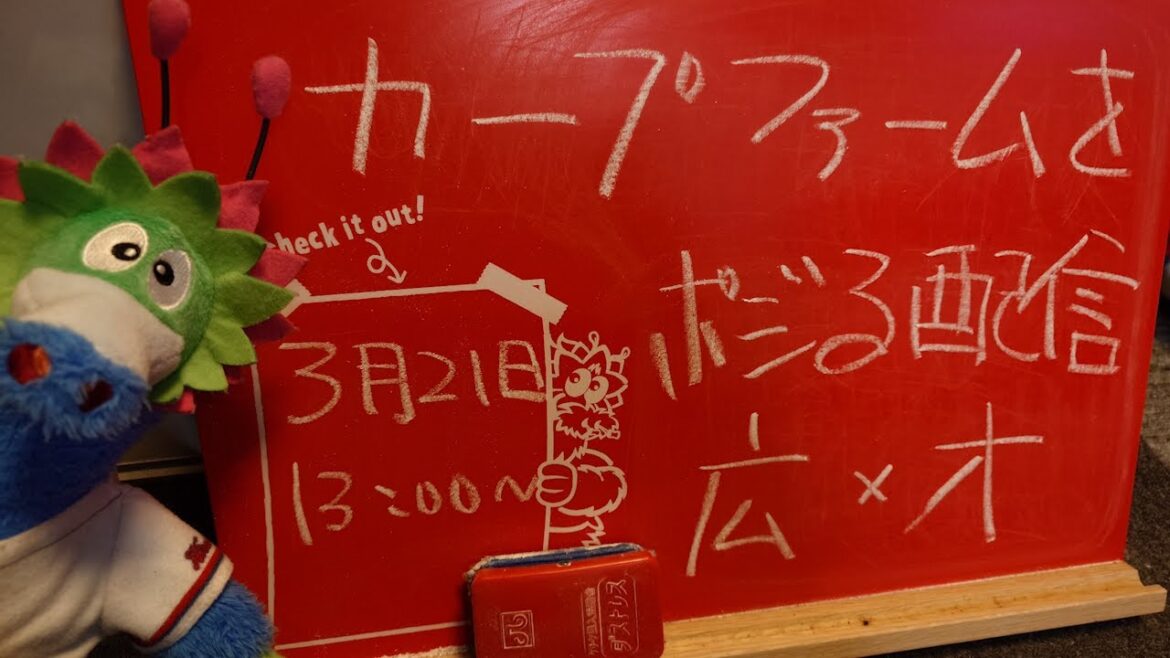 カープファームを
ポジる配信
広×オ
check it out!
3月21日
13:00〜
ダストレス